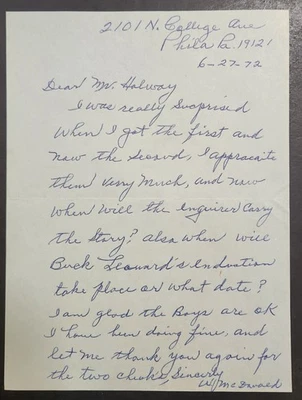 2101 N. College Ave
Phila Pa. 19121
6-27-72
Dear Mr. Holway
I was really Suoprised
when I got the first and
now the second, I appraciate
them very much, and now
when will the enquirer Carry
the Story? also when will
Buck Leonard's Enduation
take place or what date?
I am glad the Boys are ok
I hope him doing fine, and
let me thank you again for
the two checks, Sincerly
W. McDonald